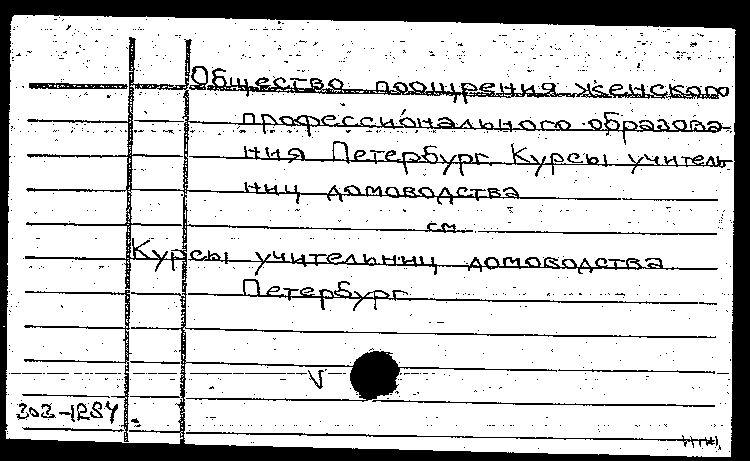 Общество поощрения женского
профессионального образова-
ния Петербург. Курсы учитель-
ниц домоводства
см.
Курсы учительниц домоводства
Петербург
V
303-1284